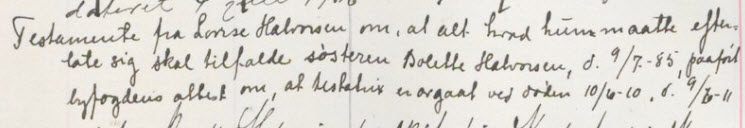 Testamente fra Lovise Halvorsen om, at alt hvad hun maatte efter-
late sig skal tilfalde søsteren Bolette Halvorsen, d. 9/7-85, paaført
byfogdens attest om, at testatrix er avgaat ved døden 10/6-10, d. 9/6-11